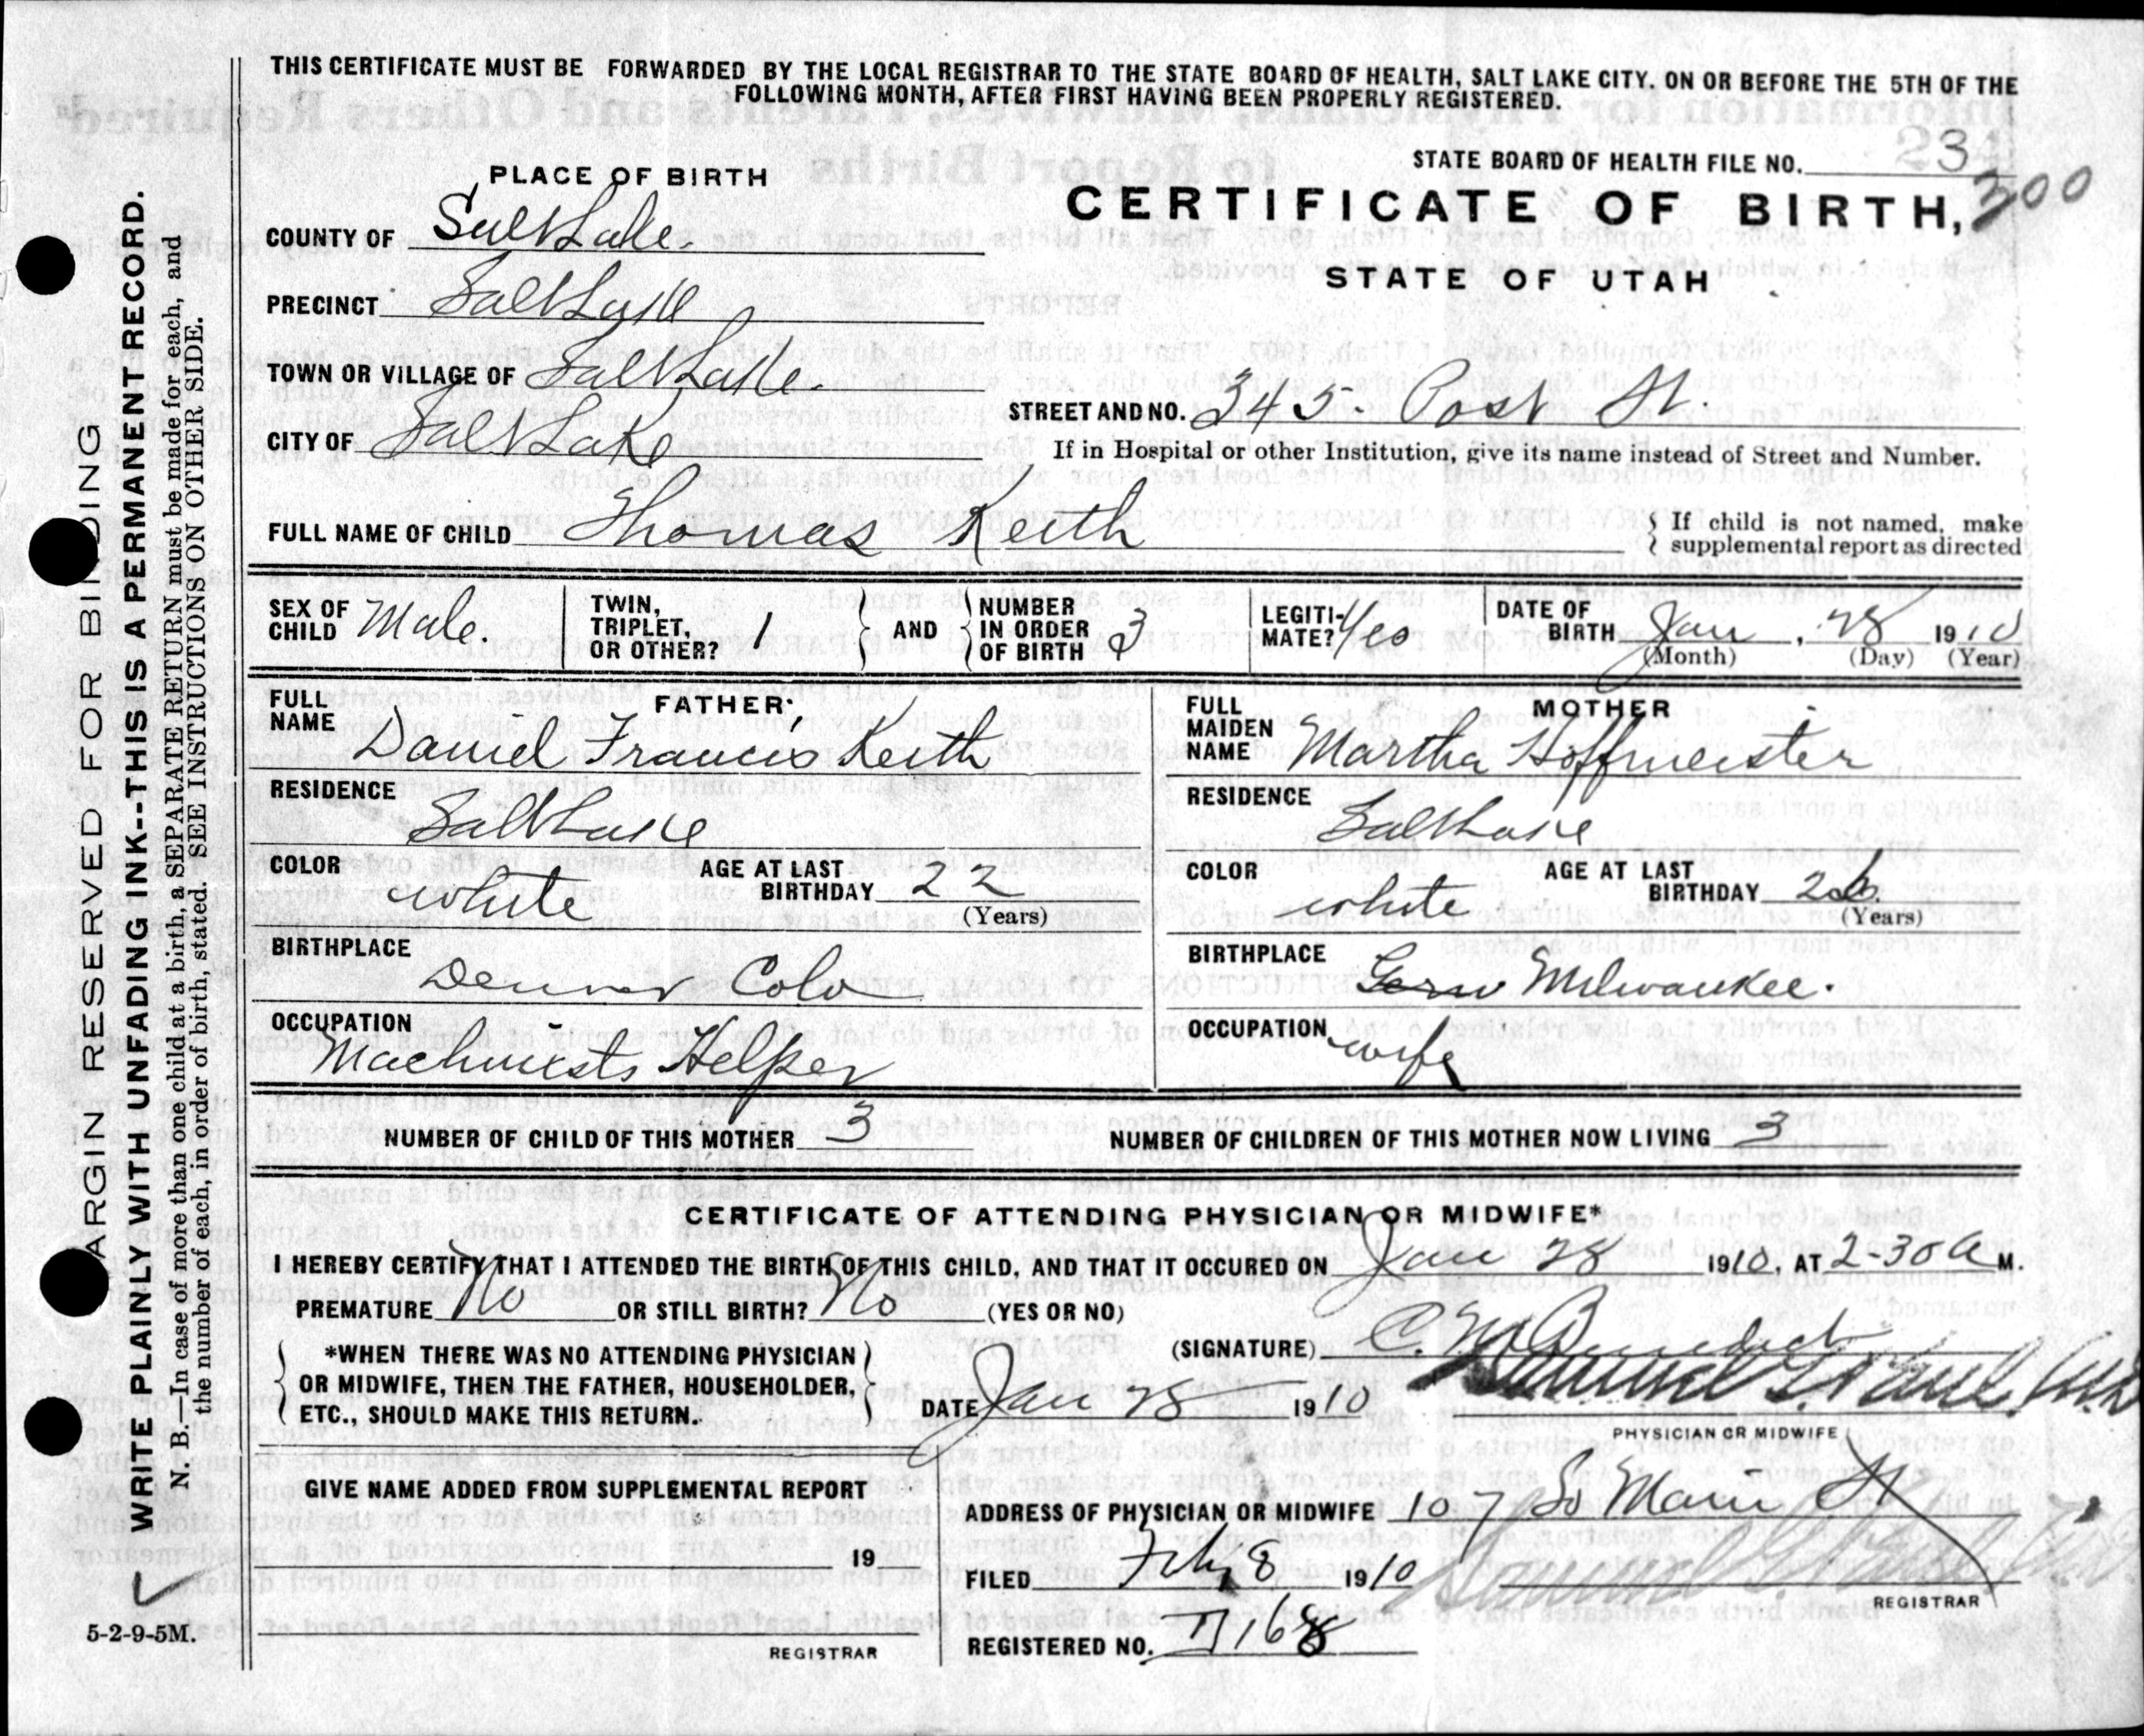 THIS CERTIFICATE MUST BE FORWARDED BY THE LOCAL REGISTRAR TO THE STATE BOARD OF HEALTH, SALT LAKE CITY. ON OR BEFORE THE 5TH OF THE
FOLLOWING MONTH, AFTER FIRST HAVING BEEN PROPERLY REGISTERED.
STATE BOARD OF HEALTH FILE NO. 23
300
CERTIFICATE OF BIRTH,
STATE OF UTAH
PLACE OF BIRTH
COUNTY OF Salt Lake.
PRECINCT Salt Lake
TOWN OR VILLAGE OF Salt Lake.
CITY OF Salt Lake
STREET AND NO. 345 Post St.
If in Hospital or other Institution, give its name instead of Street and Number.
FULL NAME OF CHILD Thomas Keith
If child is not named, make
supplemental report as directed
SEX OF CHILD Male.
TWIN, TRIPLET, OR OTHER? 1
AND
NUMBER IN ORDER OF BIRTH 3
LEGITI-MATE? Yes
DATE OF BIRTH Jan, 28 1910
(Month) (Day) (Year)
FATHER
FULL NAME Daniel Francis Keith
RESIDENCE Salt Lake
COLOR white
AGE AT LAST BIRTHDAY 22
(Years)
BIRTHPLACE Denver Colo
OCCUPATION Machinists Helper
MOTHER
FULL MAIDEN NAME Martha Hoffmeister
RESIDENCE Salt Lake
COLOR white
AGE AT LAST BIRTHDAY 26.
(Years)
BIRTHPLACE Milwaukee.
OCCUPATION wife
NUMBER OF CHILD OF THIS MOTHER 3
NUMBER OF CHILDREN OF THIS MOTHER NOW LIVING 3
CERTIFICATE OF ATTENDING PHYSICIAN OR MIDWIFE*
I HEREBY CERTIFY THAT I ATTENDED THE BIRTH OF THIS CHILD, AND THAT IT OCCURED ON Jan 28 1910, AT 2-30 A M.
PREMATURE No OR STILL BIRTH? No (YES OR NO)
*WHEN THERE WAS NO ATTENDING PHYSICIAN
OR MIDWIFE, THEN THE FATHER, HOUSEHOLDER,
ETC., SHOULD MAKE THIS RETURN.
(SIGNATURE) C. M. Benedict
DATE Jan 28 1910
PHYSICIAN OR MIDWIFE
GIVE NAME ADDED FROM SUPPLEMENTAL REPORT
19
REGISTRAR
ADDRESS OF PHYSICIAN OR MIDWIFE 107 So Main St
FILED Feb, 8 1910
REGISTRAR
REGISTERED NO. 168
MARGIN RESERVED FOR BINDING
WRITE PLAINLY WITH UNFADING INK--THIS IS A PERMANENT RECORD.
N. B.—In case of more than one child at a birth, a SEPARATE RETURN must be made for each, and
the number of each, in order of birth, stated. SEE INSTRUCTIONS ON OTHER SIDE.
5-2-9-5M.